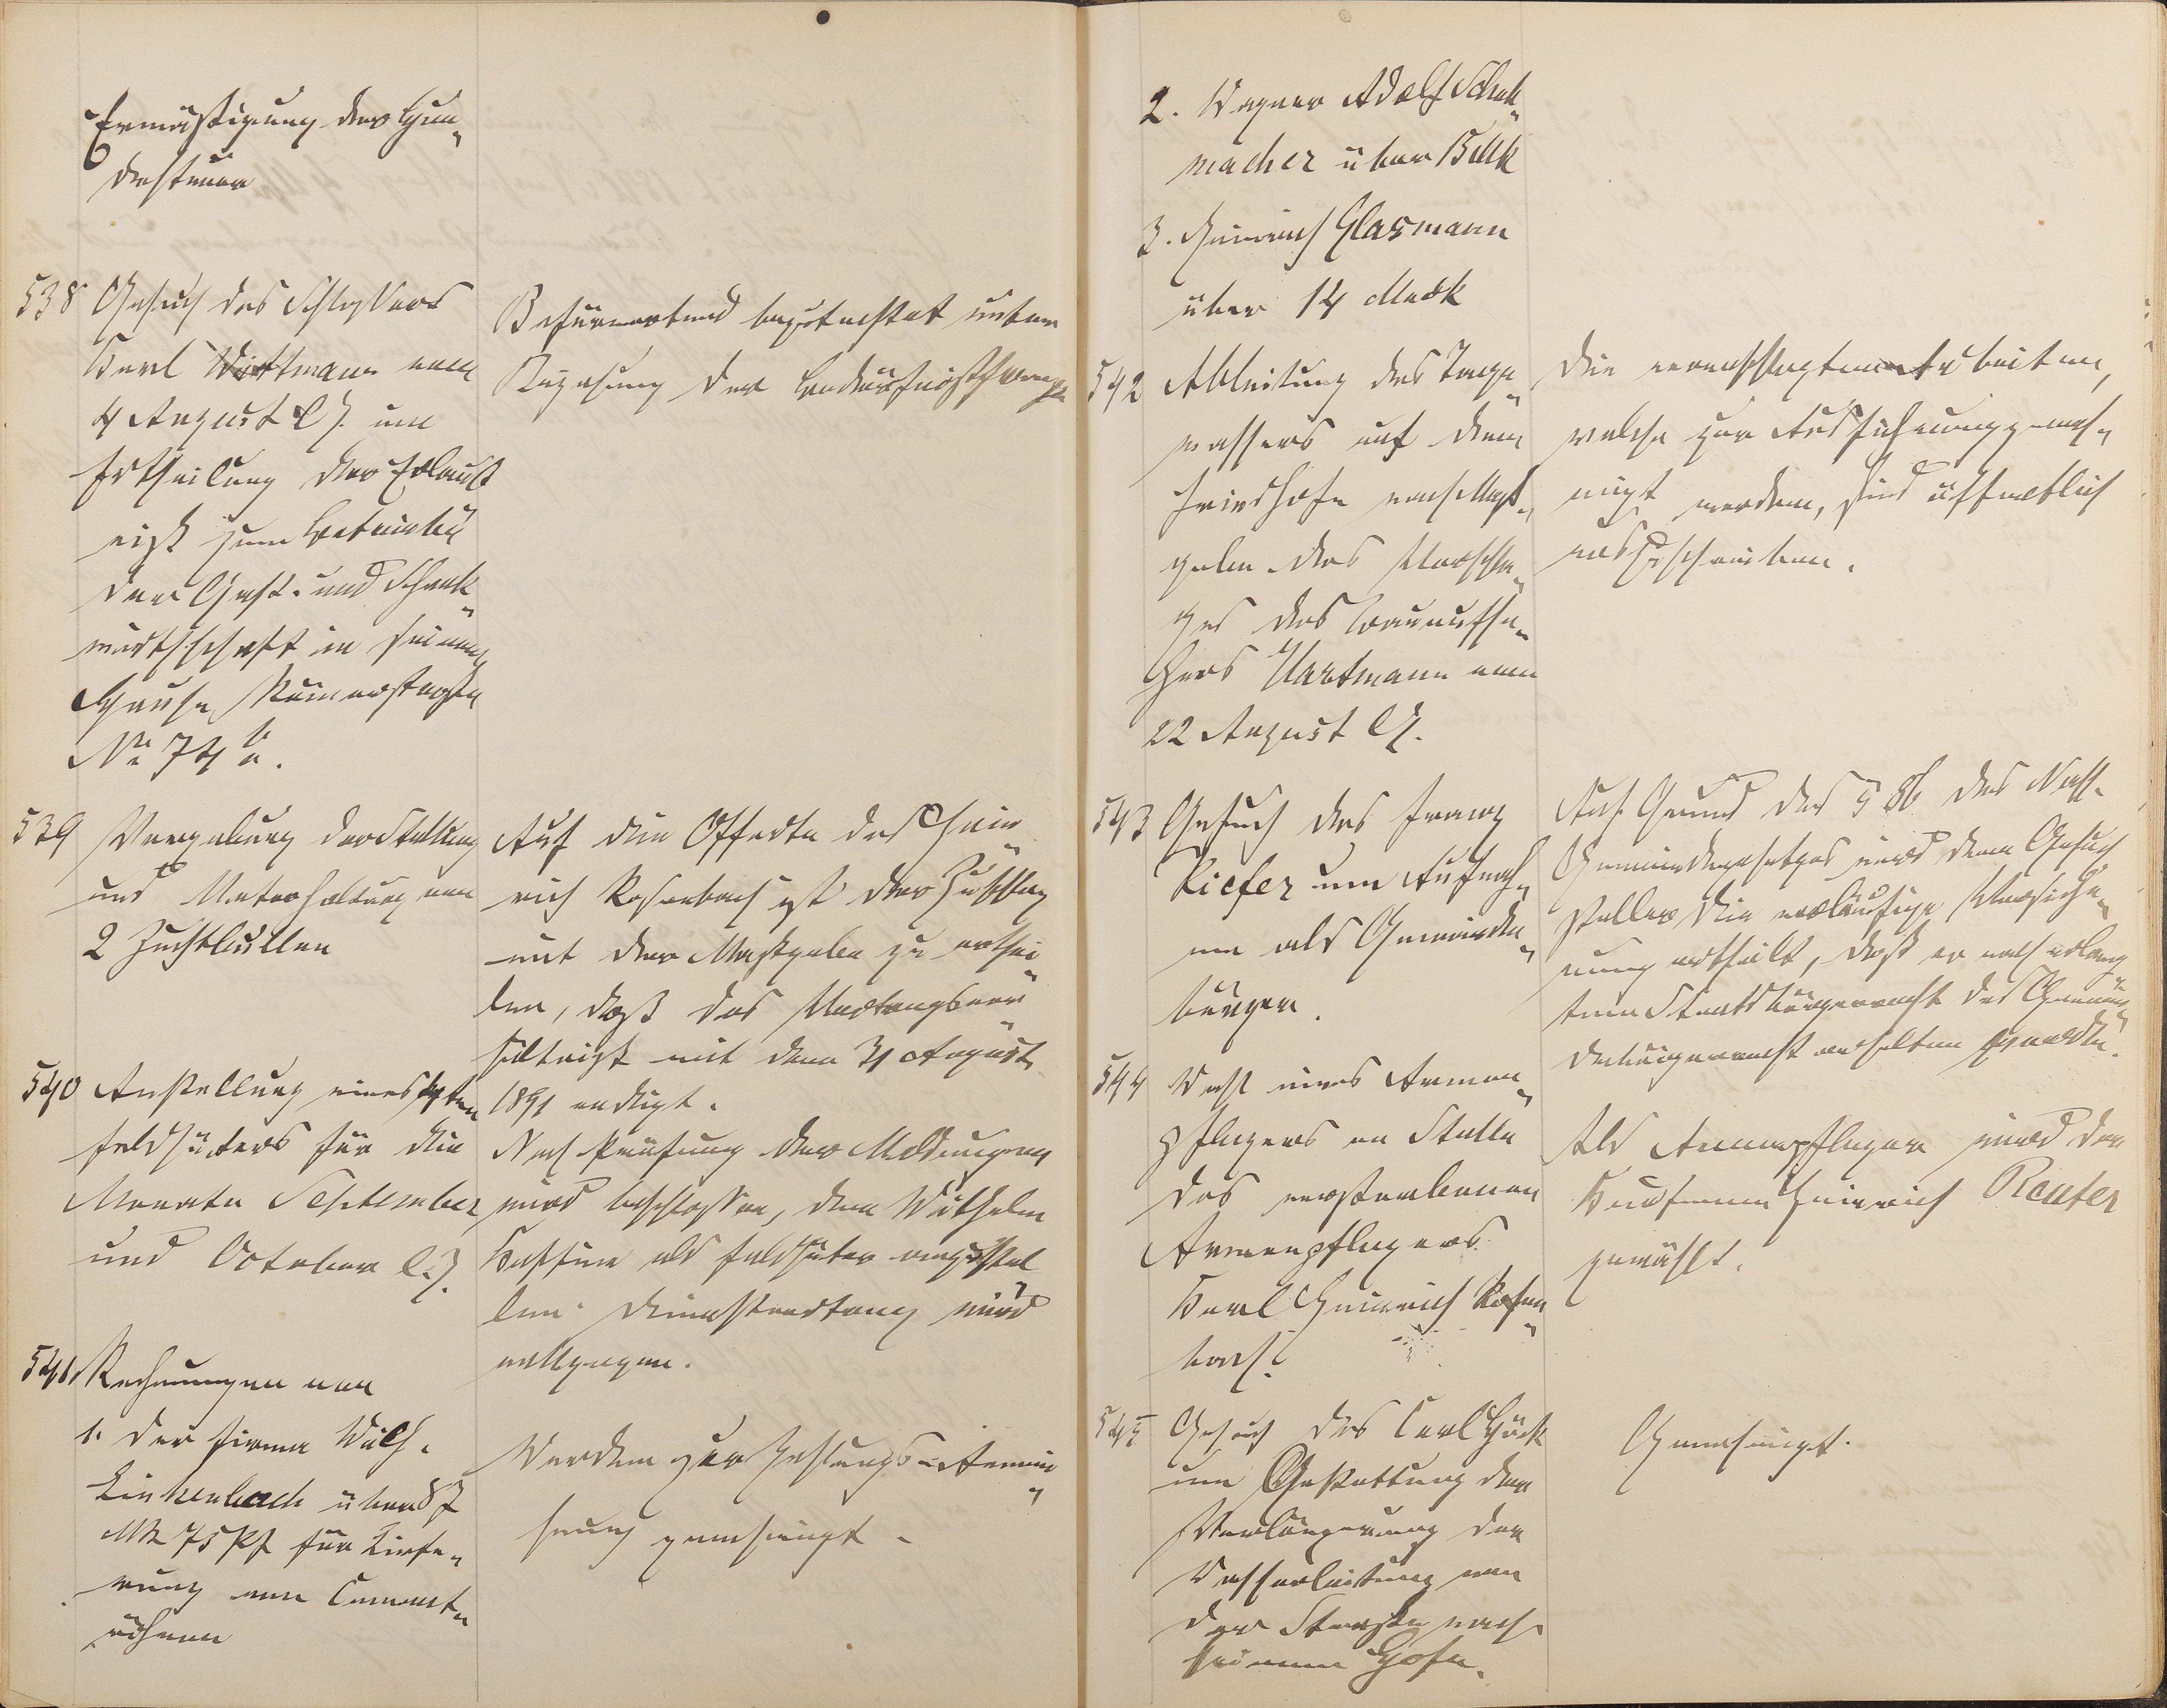 Ermäßigung der Hun-
desteuer
538 Gesuch des Schlossers
Karl Wittmann vom
4 August l. J. um
Ertheilung der Erlaub
niß zum Betriebe
der Gast- und Schank-
wirthschaft in seinem
Hause, Römerstraße
No 74 a.
Befürwortend begutachtet unter
Bejahung der Bedürfnißfrage
539 Vergebung der Stellung
und Unterhaltung von
2 Zuchtbullen
Auf die Offerte des Hein-
rich Rosenbach ist der Zuschlag
mit der Maßgabe zu erthei-
len, daß das Vertragsver-
hältniß mit dem 31 August
1891 endigt.
540 Anstellung eines 4ten
Feldhüters für die
Monate September
und October l. J.
Nach Prüfung der Meldungen
wird beschlossen, den Wilhelm
als Feldhüter anzustel
len. Dienstvertrag wird
vollzogen.
541 Rechnungen von
1. der Firma Wilh.
Linkenbach über 87
Mk 75 Pf für Liefe-
rung von Cement-
röhren
Werden zur Zahlungs-Anwei-
sung genehmigt.
2. Wagner Adolf Schuh-
macher über 15 Mk
3. Heinrich Glasmann
über 14 Mark
542 Ableitung des Tage-
wassers auf dem
Friedhofe nach Maß-
gabe des Vorschla-
ges des Bauaufse-
hers Hartmann vom
22 August l. J.
Die veranschlagten Arbeiten,
welche zur Ausführung geneh-
migt werden, sind öffentlich
auszuschreiben.
543 Gesuch des Franz
Kiefer um Aufnah-
me als Gemeinde-
bürger.
Auf Grund des § 86 des Nass.
Gemeindegesetzes wird dem Gesuch
steller die vorläufige Versiche-
rung ertheilt, daß er nach erlang-
tem Staatsbürgerrecht das Gemein-
debürgerrecht erhalten werde.
544 Wahl eines Armen-
pflegers an Stelle
des verstorbenen
Armenpflegers
Karl Heinrich Rosen-
bach.
Als Armenpfleger wird der
Kaufmann Heinrich Reuter
gewählt.
545 Gesuch des Carl Höck
um Gestattung der
Verlängerung der
Wasserleitung von
der Straße nach
seinem Hofe.
Genehmigt.